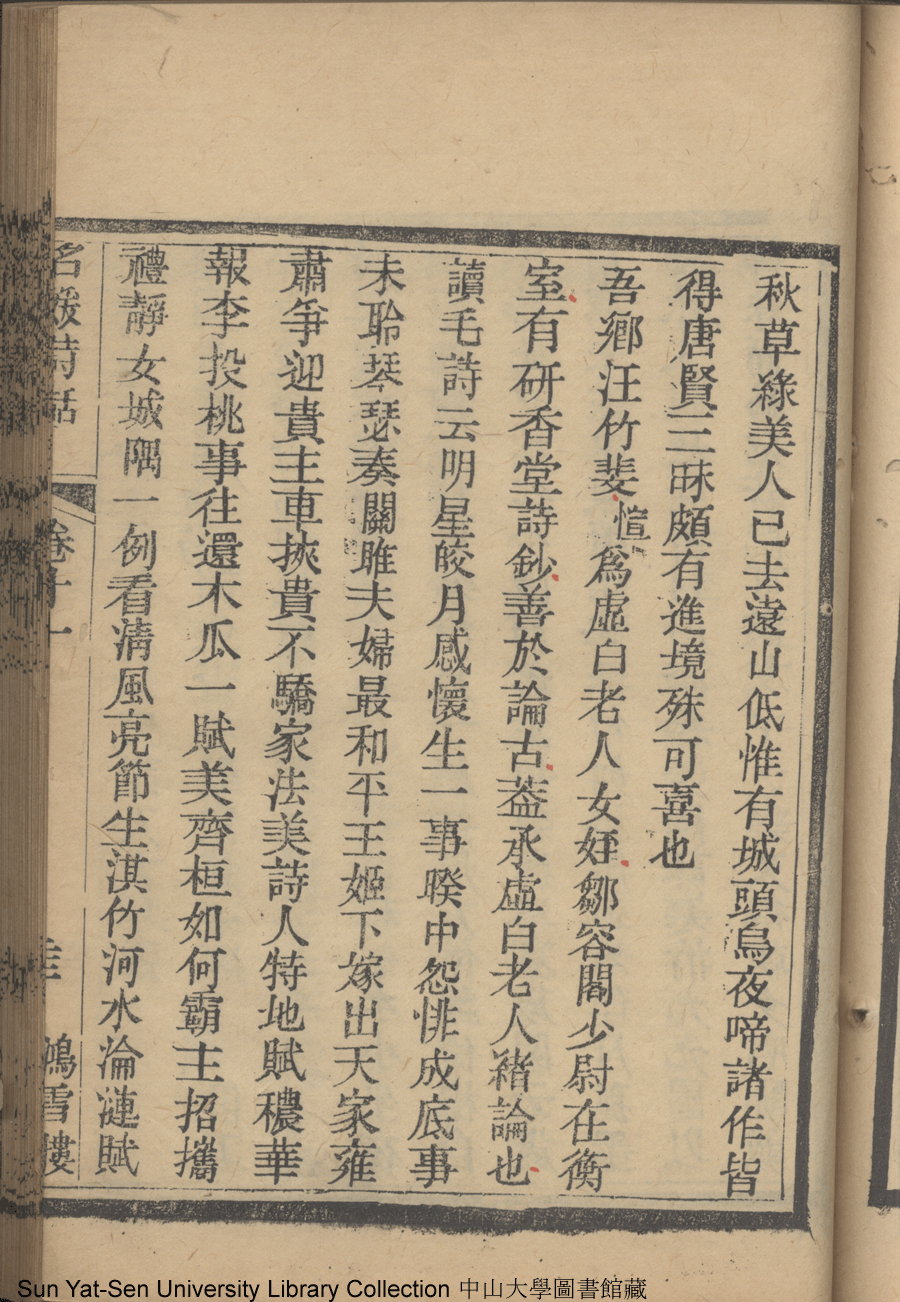 秋草綠美人已去遠山低惟有城頭烏夜啼諸作皆
得唐賢三昧頗有進境殊可喜也
吾鄉汪竹斐愃為虛白老人女姪鄒容閣少尉在衡
室有研香堂詩鈔善於論古葢承虛白老人緒論也
讀毛詩云明星皎月感懷生一事暌中怨悱成底事
未聆琴瑟奏關雎夫婦最和平王姬下嫁出天家雍
肅爭迎貴主車挾貴不驕家法美詩人特地賦穠華
報李投桃事往還木瓜一賦美齊桓如何霸主招攜
禮靜女城隅一例看淸風亮節生淇竹河水淪漣賦
名媛詩話 卷十一 鴻雪樓
Sun Yat-Sen University Library Collection 中山大學圖書館藏